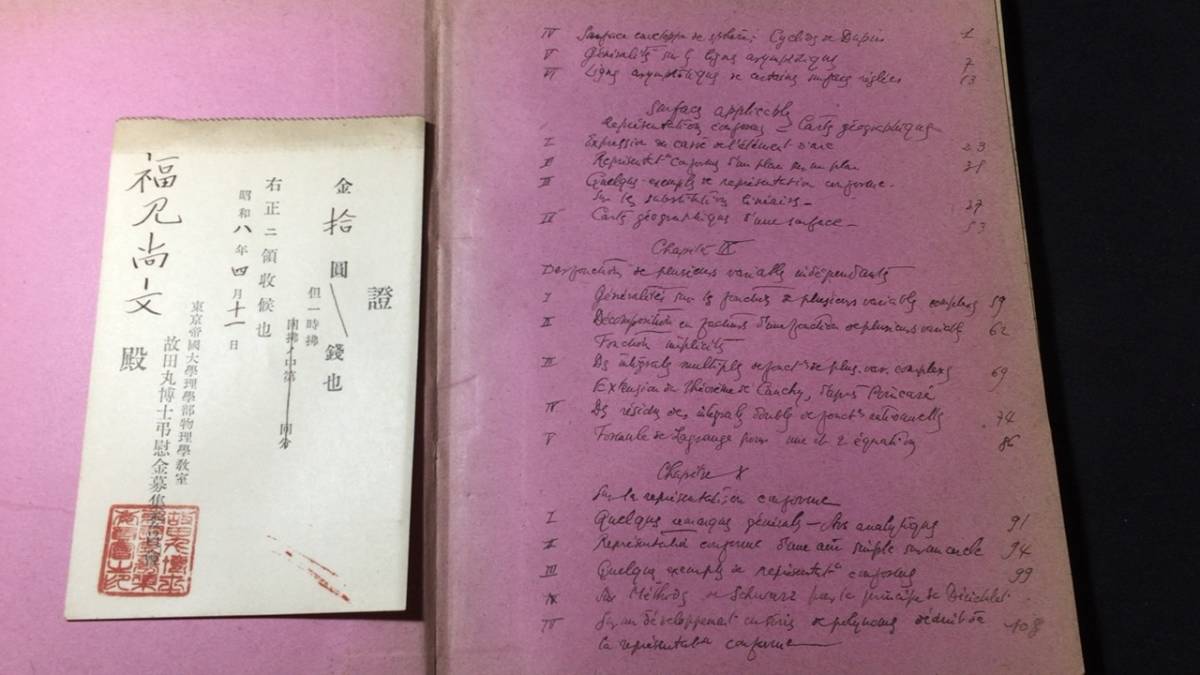 證
金 拾 圓 錢也
但一時拂
右正ニ領收候也
昭和八年四月十一日
東京帝國大學理學部物理學教室
故田丸博士弔慰金募集
福見尚文 殿
IV Surface enveloppe de sphères; Cyclides de Dupin 1
V Généralités sur les lignes asymptotiques 7
VI Lignes asymptotiques de certaines surfaces réglées 13
Surfaces applicables
Représentation conforme Carte géographique
I Expression du carré de l'élément d'arc 23
II Représentat^n conforme d'un plan sur un plan
III Quelques exemples de représentation conforme.
Sur les substitutions linéaires 37
IV Carte géographique d'une surface 53
Chapitre IX
Des fonctions de plusieurs variables indépendantes
I Généralités sur les fonctions de plusieurs variables complexes 59
II Décomposition en facteurs d'une fonction de plusieurs variables 62
Fonctions implicites
III Des intégrales multiples de fonct^ns de plus. var. complexes 69
Extension du théorème de Cauchy, d'après Poincaré
IV Des résidus des intégrales doubles de fonct^ns rationnelles 74
V Formule de Lagrange pour une et 2 équations 86
Chapitre X
Sur la représentation conforme
I Quelques remarques générales — Arcs analytiques 91
II Représentation conforme d'une aire simple sur un cercle 94
III Quelques exemples de représentat^n conforme 99
Méthode de Schwarz pour le principe de Dirichlet
IV Sur un développement en série de polynomes déduit de 108
la représentation conforme